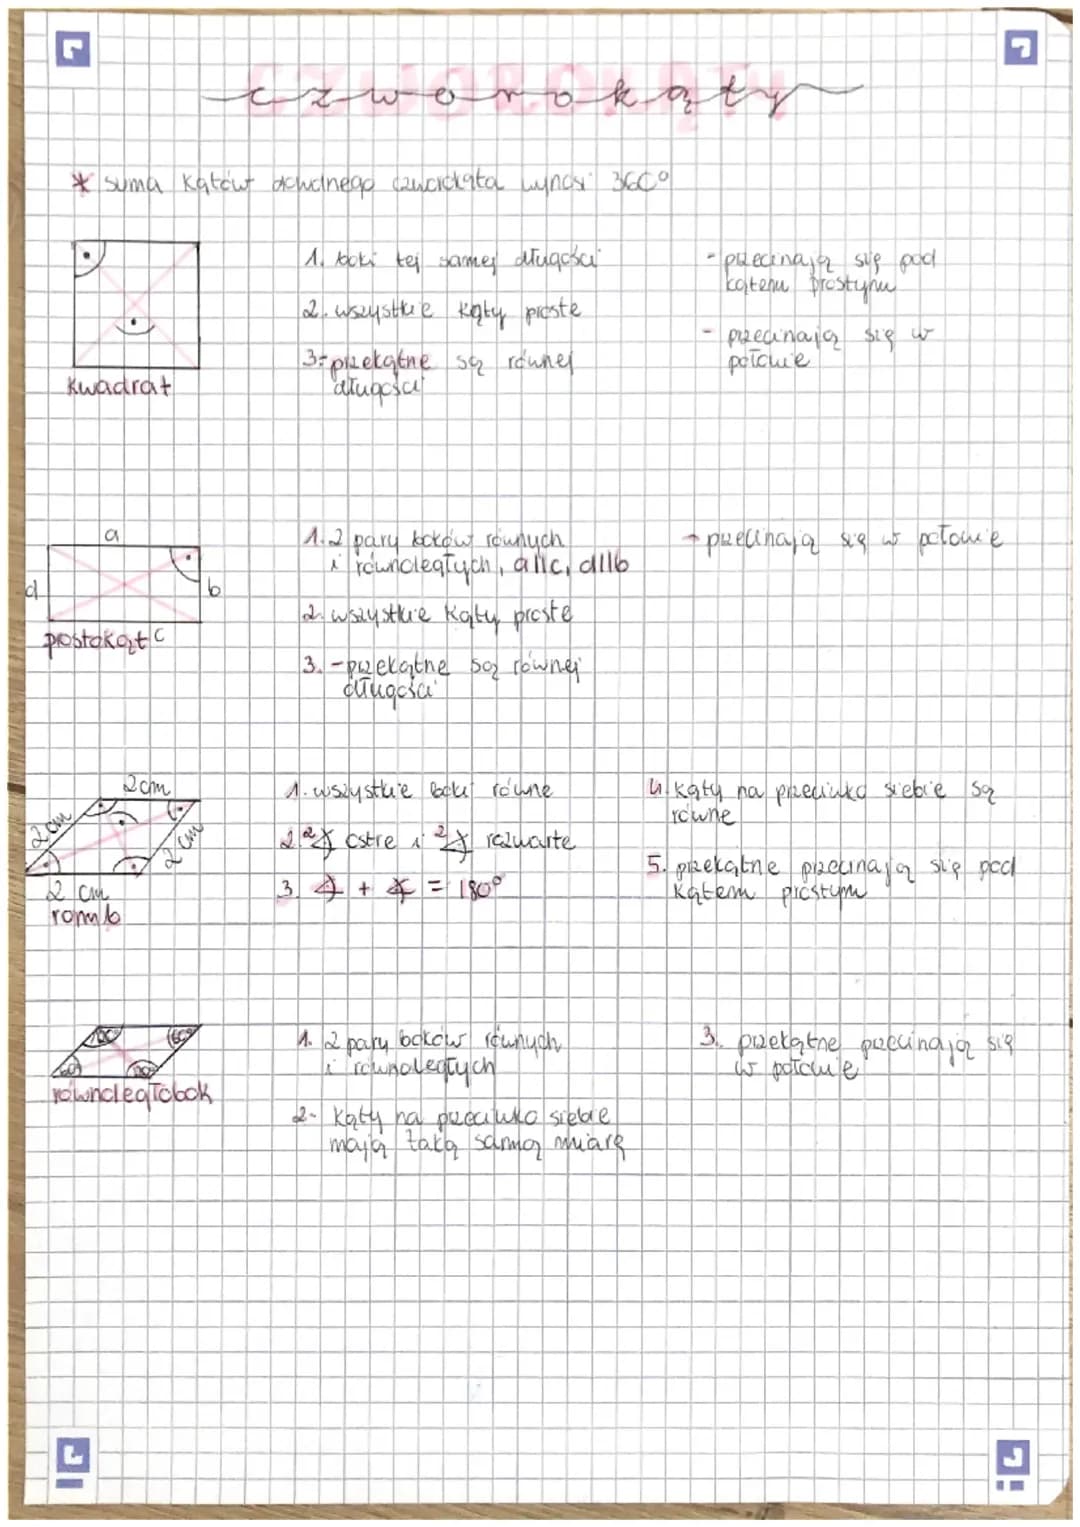 czworokąty
* suma kątów dowolnego czworokąta wynosi 360°
1. boki tej samej długości
2. wszystkie kąty proste
3. - przekątne są równej
długości
- przecinają się pod
kątem prostym
- przecinają się w
połowie
kwadrat
a
d
b
c
prostokąt
1. 2 pary boków równych
i równoległych, a||c, d||b
2. wszystkie kąty proste
3. - przekątne są równej
długości
- przecinają się w połowie
2cm
2cm
2cm
2 cm
romb
1. wszystkie boki równe
2. 2∢ ostre i 2∢ rozwarte
3. ∢ + ∢ = 180°
4. kąty na przeciwko siebie są
równe
5. przekątne przecinają się pod
kątem prostym
równoległobok
1. 2 pary boków równych
i równoległych
2. kąty na przeciwko siebie
mają taką samą miarę
3. przekątne przecinają się
w połowie